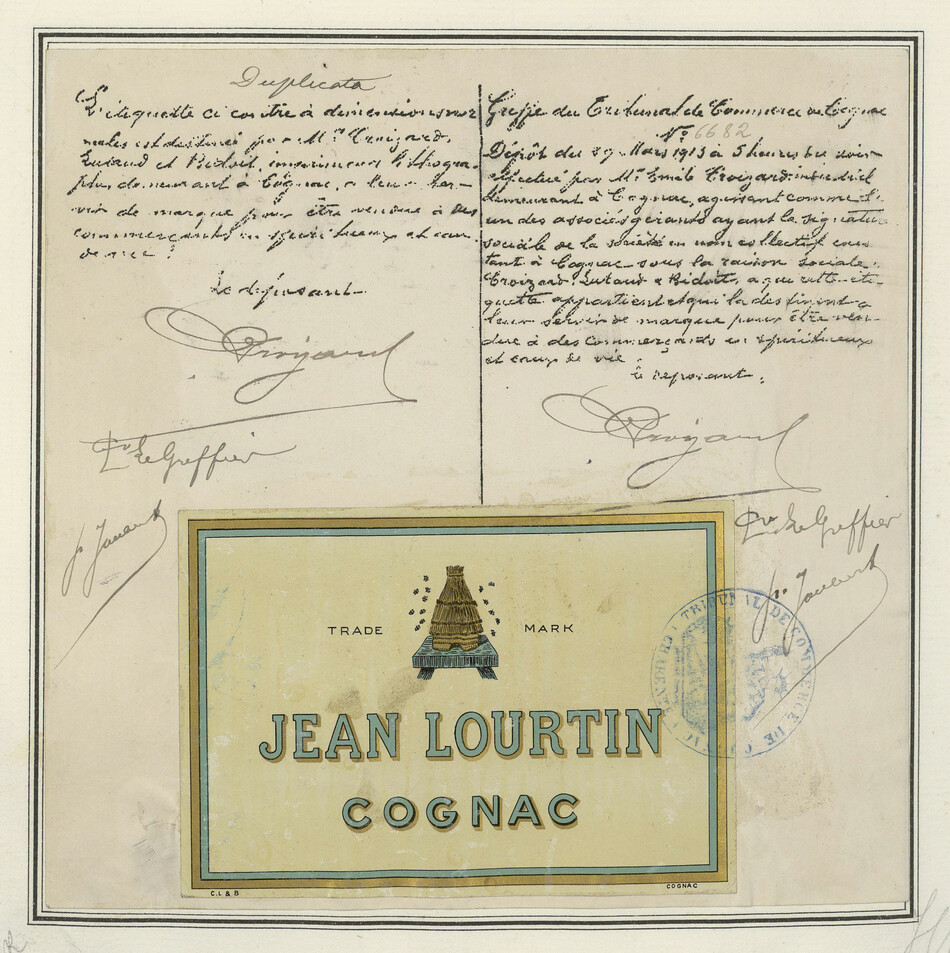 Duplicata
L'étiquette ci contre à dimensions nor
males est destinée par Mrs Croizard,
Lutaud et Bidoit, imprimeurs lithogra
phes demeurant à Cognac, à leur ser-
vir de marque pour être vendue à des
commerçants en spiritueux et eaux
de vie.
Le déposant
Croizard
Le Greffier
Greffe du Tribunal de Commerce de Cognac
No 6682
Dépôt du 29 Mars 1913 à 5 heures du soir
effectué par Mr Emile Croizard industriel
demeurant à Cognac, agissant comme l'
un des associés gérants ayant la signature
sociale de la société en nom collectif exis
tant à Cognac sous la raison sociale:
Croizard Lutaud & Bidoit, à qui cette éti-
quette appartient et qui la destinent à
leur servir de marque pour être ven-
due à des commerçants en spiritueux
et eaux de vie.
Le déposant.
Croizard
Le Greffier
TRADE MARK
JEAN LOURTIN
COGNAC
C.L & B
COGNAC
TRIBUNAL DE COMMERCE DE COGNAC